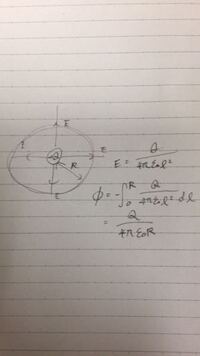 E
E
Q
R
E
E = Q / 4πε₀l²
φ = -∫₀ᴿ Q / 4πε₀l² dl
= Q / 4πε₀R